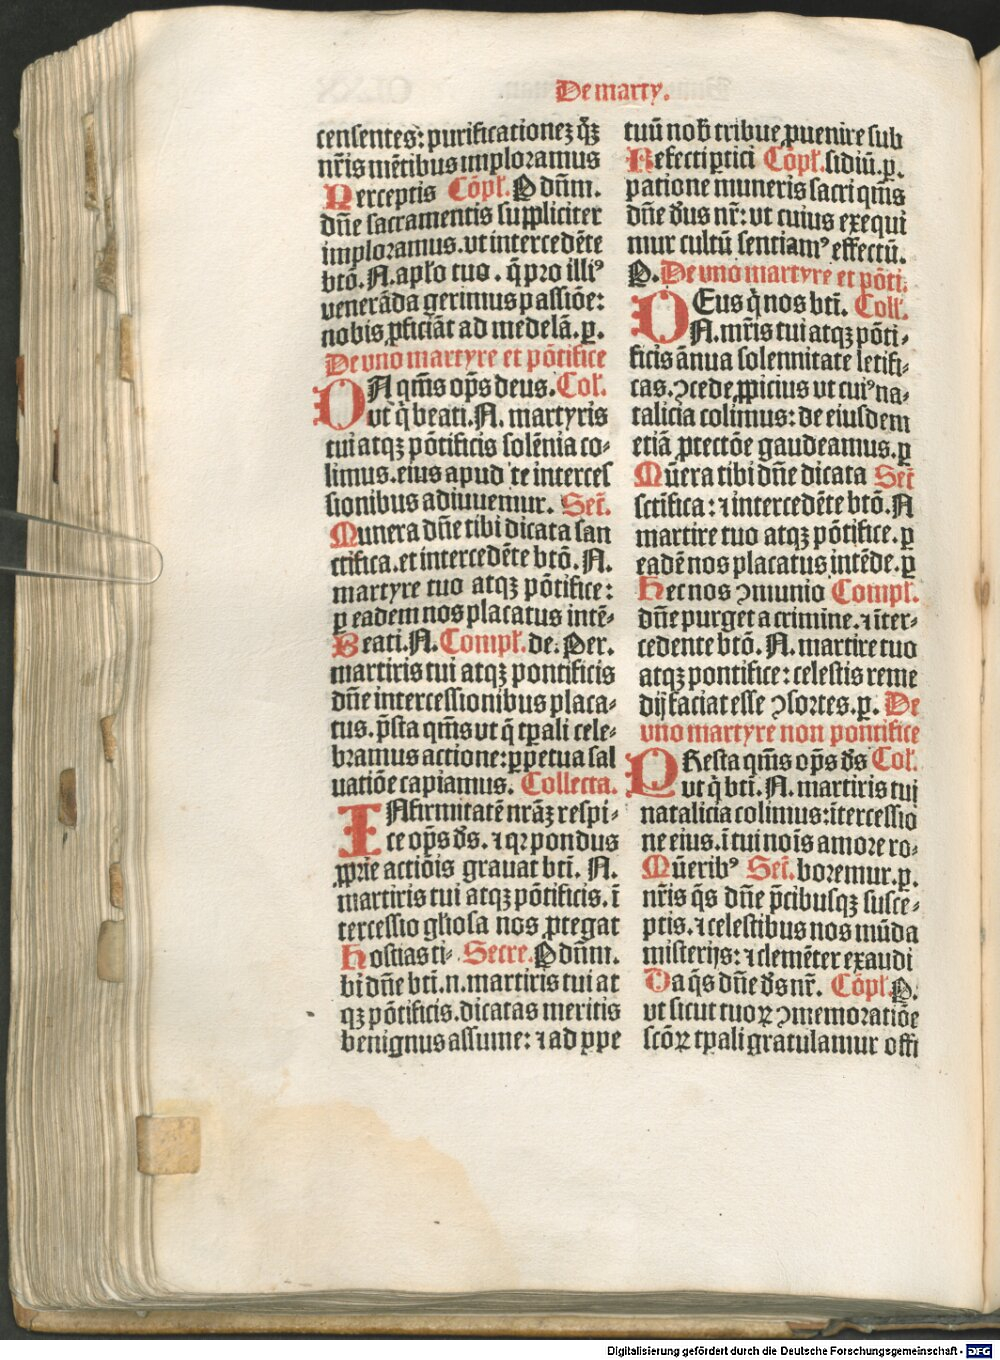 De marty.
censentes: purificationez q̃z
nr̃is mẽtibus imploramus
Perceptis Cõpl̃. P dñm.
dñe sacramentis suppliciter
imploramus. vt intercedẽte
btõ. N. apl̃o tuo. q̃ pro illiꝰ
venerãda gerimus passiõe:
nobis ꝓficiãt ad medelã. ꝑ.
De vno martyre et põtifice
DA qm̃s op̃s deus. Col̃.
vt q̃ beati. N. martyris
tui atqꝫ põtificis solẽnia co⸗
limus. eius apud te interces
sionibus adiuuemur. Secr̃.
Munera dñe tibi dicata san
ctifica. et intercedẽte btõ. N.
martyre tuo atqꝫ põtifice:
ꝑ eadem nos placatus intẽ⸗
Beati. N. Compl̃. de. Per.
martiris tui atqꝫ pontificis
dñe intercessionibus placa⸗
tus. p̃sta qm̃s vt q̃ tꝑali cele⸗
bramus actione: ꝑpetua sal
uatiõe capiamus. Collecta.
INfirmitatẽ nrãꝫ respi⸗
ce op̃s ds̃. ⁊ qꝛ pondus
ꝓprie actiõis grauat bti̇̃. N.
martiris tui atqꝫ põtificis. ĩ
tercessio gl̃iosa nos ꝓtegat
Hostias ti⸗ Secre. P dñm.
bi dñe bti̇̃. n. martiris tui at
qꝫ põtificis. dicatas meritis
benignus assume: ⁊ ad ꝑpe
tuũ nob̃ tribue ꝓuenire sub
Refecti ꝑtici Cõpl̃. sidiũ. ꝑ.
patione muneris sacri qm̃s
dñe ds̃us nr̃: vt cuius exequi
mur cultũ sentiamꝰ effectũ.
P. De vno martyre et põti.
DEus q̃ nos bti̇̃. Coll̃.
N. mr̃is tui atqꝫ põti⸗
ficis ãnua solennitate letifi⸗
cas. ꝯcede ꝓpicius vt cuiꝰ na⸗
talicia colimus: de eiusdem
etiã ꝓtectõe gaudeamus. ꝑ
Mũera tibi dñe dicata Secr̃
sctĩfica: ⁊ intercedẽte btõ. N
martire tuo atqꝫ põtifice. ꝑ
eadẽ nos placatus intẽde. ꝑ
Hec nos ꝯmunio Compl̃.
dñe purget a crimine. ⁊ ĩter⸗
cedente btõ. N. martire tuo
atqꝫ pontifice: celestis reme
dij faciat esse ꝯsortes. ꝑ. De
vno martyre non pontifice
PResta qm̃s op̃s ds̃ Col̃.
vt q̃ bti̇̃. N. martiris tui
natalicia colimus: ĩtercessio
ne eius. ĩ tui nois̃ amore ro⸗
Mũeribꝰ Secr̃. boremur. ꝑ.
nr̃is q̃s dñe p̃cibusqꝫ susce⸗
ptis. ⁊ celestibus nos mũda
misterijs: ⁊ clemẽter exaudi
Da q̃s dñe ds̃ nr̃. Cõpl̃. P.
vt sicut tuoꝝ ꝯmemoratiõe
scõꝝ tꝑali gratulamur offi
Digitalisierung gefördert durch die Deutsche Forschungsgemeinschaft - DFG